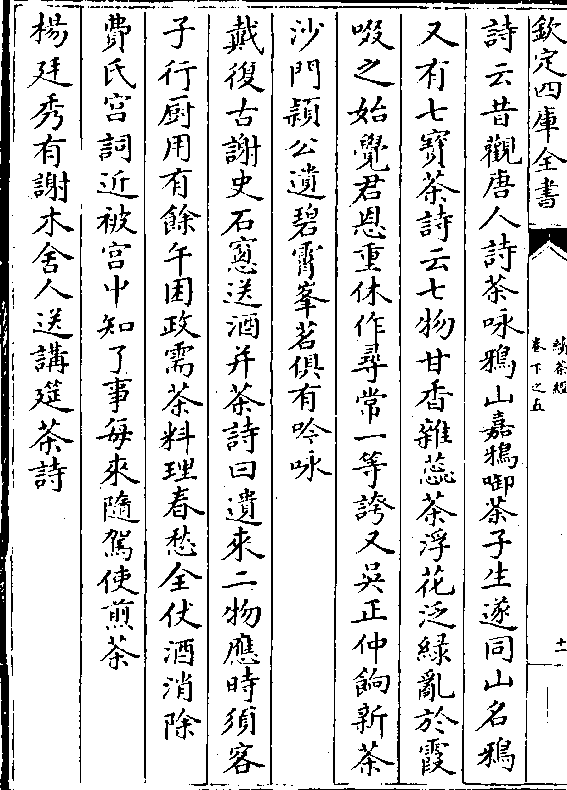 欽定四庫全書
續茶經
卷下之五
十一
詩云昔觀唐人詩茶咏鴉山嘉鴉啣茶子生遂同山名鴉
又有七寳茶詩云七物甘香雜蕊茶浮花泛緑亂於霞
啜之始覺君恩重休作尋常一等誇又吳正仲餉新茶
沙門頴公遺碧霄峯茗俱有吟咏
戴復古謝史石窓送酒并茶詩曰遺來二物應時須客
子行厨用有餘午困政需茶料理春愁全仗酒消除
費氏宫詞近被宫中知了事每來隨駕使煎茶
楊廷秀有謝木舍人送講筵茶詩